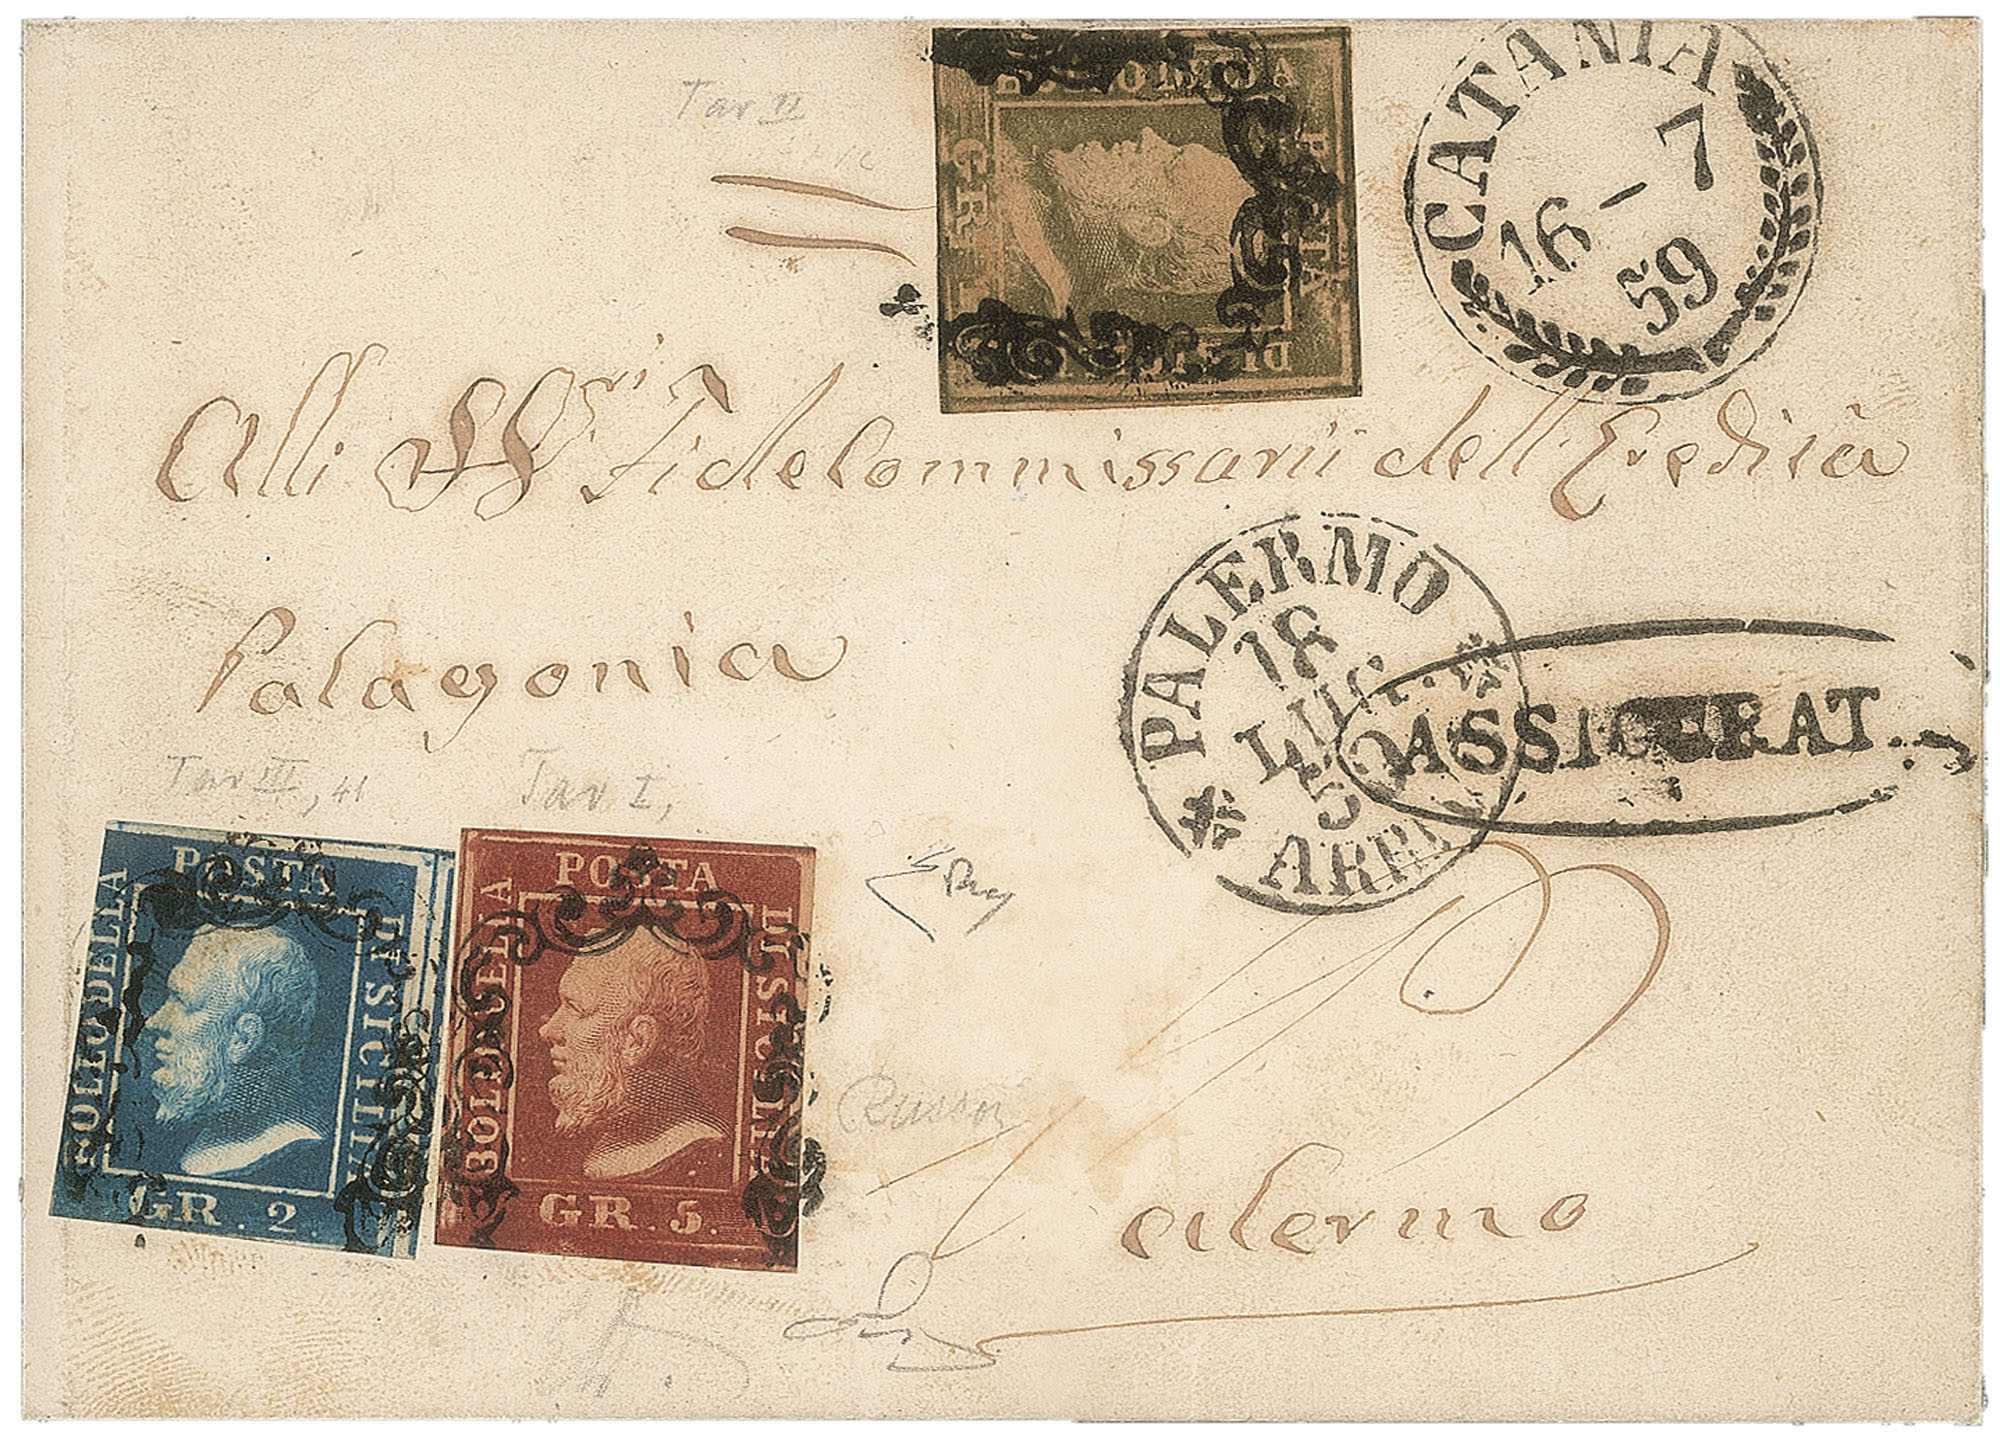 Tav II
BOLLO DELLA
POSTA
DI SICILIA
GR. 1
CATANIA
16 - 7
59
Alli SS.ri Fidecommissarii dell'Eredità
Palagonia
PALERMO
18
LUG.
59
ARRI
ASSICURAT.
Tav III, 41
Tav I,
BOLLO DELLA
POSTA
DI SICILIA
GR. 2.
BOLLO DELLA
POSTA
DI SICILIA
GR. 5.
Palermo